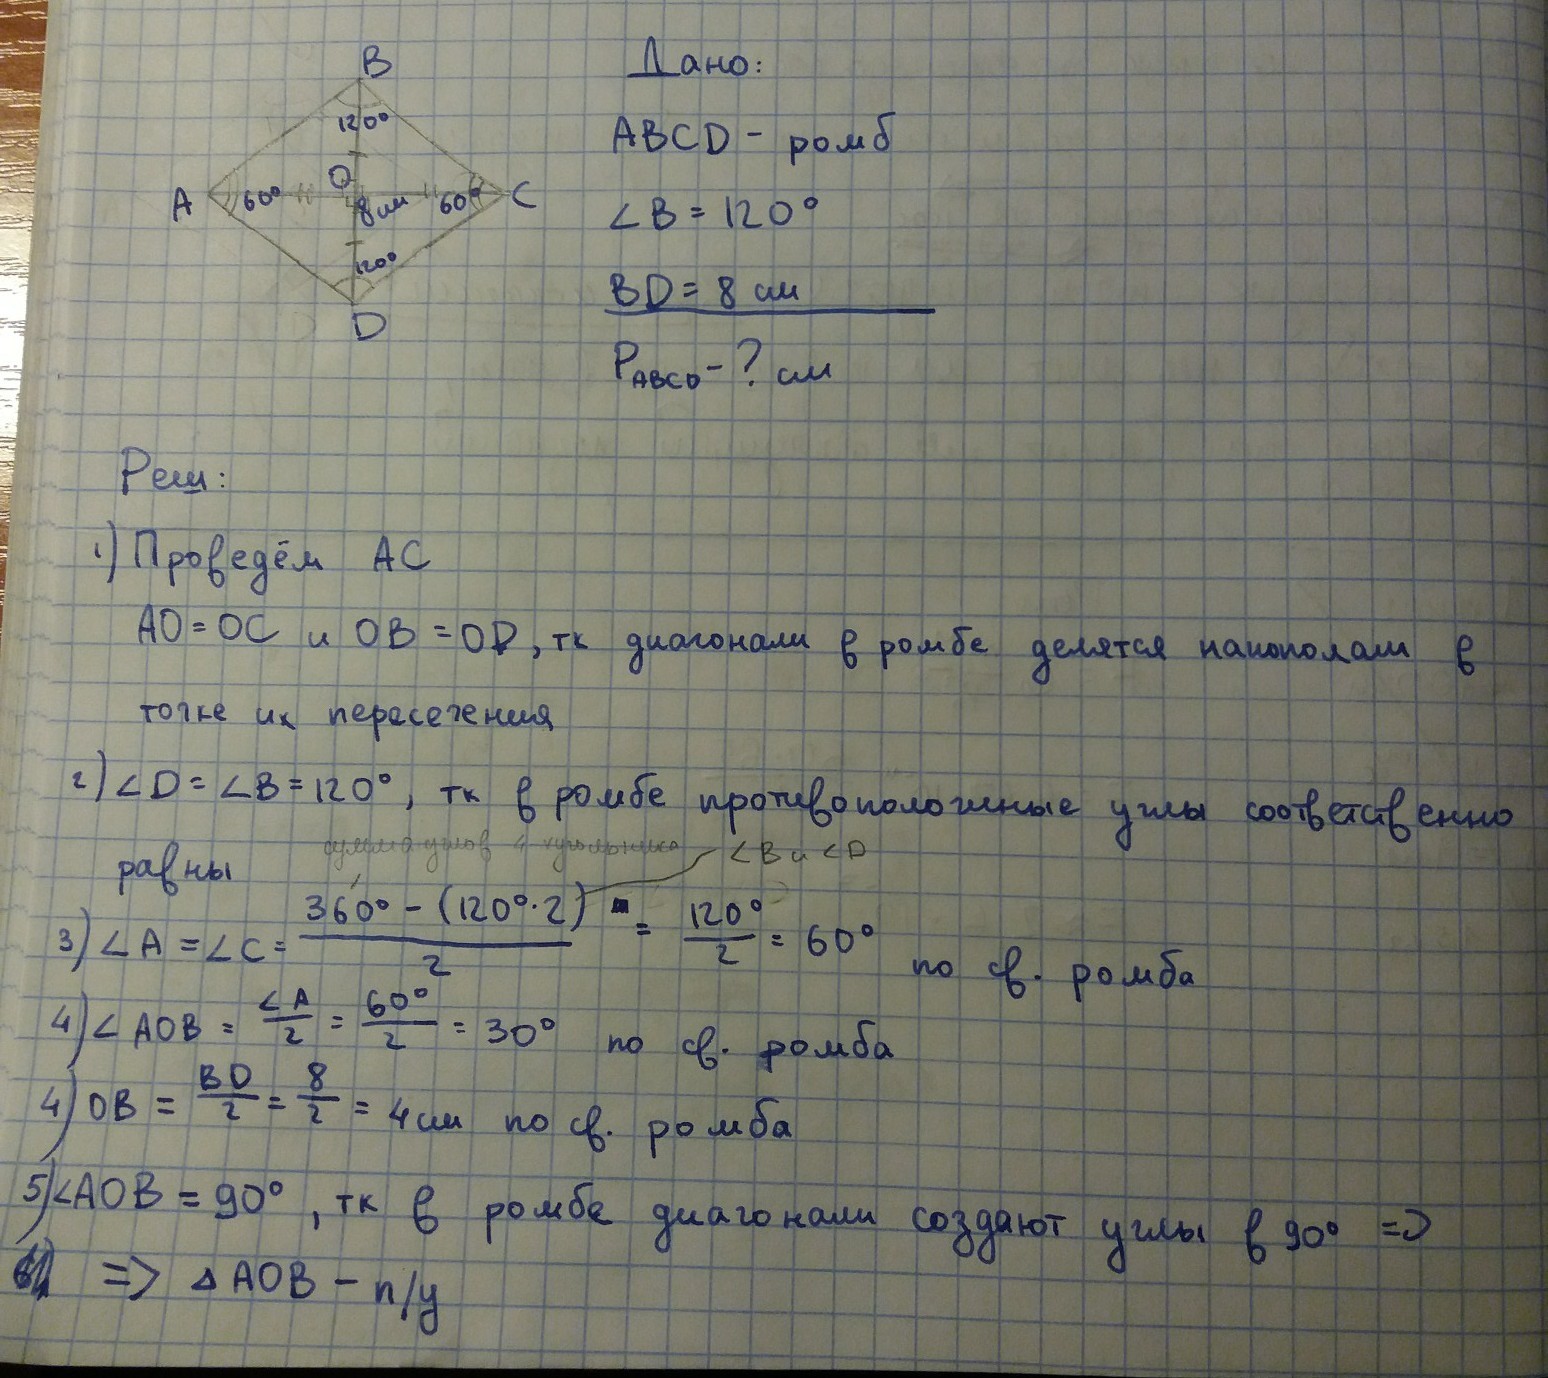 B
120°
O
A 60° 8 см 60° C
120°
D
Дано:
ABCD - ромб
∠B = 120°
BD = 8 см
P_ABCD - ? см
Реш:
1) Проведём AC
AO = OC и OB = OD, тк диагонали в ромбе делятся напополам в
точке их пересечения
2) ∠D = ∠B = 120°, тк в ромбе противоположные углы соответственно
равны
сумма углов 4 угольника ∠B и ∠D
3) ∠A = ∠C = (360° - (120°·2))/2 = 120°/2 = 60° по св. ромба
4) ∠AOB = ∠A/2 = 60°/2 = 30° по св. ромба
4) OB = BD/2 = 8/2 = 4 см по св. ромба
5) ∠AOB = 90°, тк в ромбе диагонали создают углы в 90° =>
=> ▵AOB - п/у